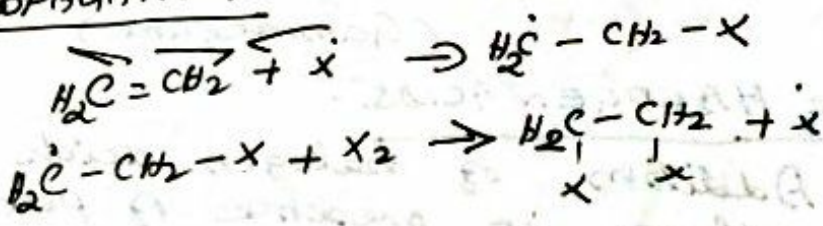 H₂C = CH₂ + Ẋ → H₂Ċ - CH₂ - X
H₂Ċ - CH₂ - X + X₂ → H₂C - CH₂ + Ẋ
X X